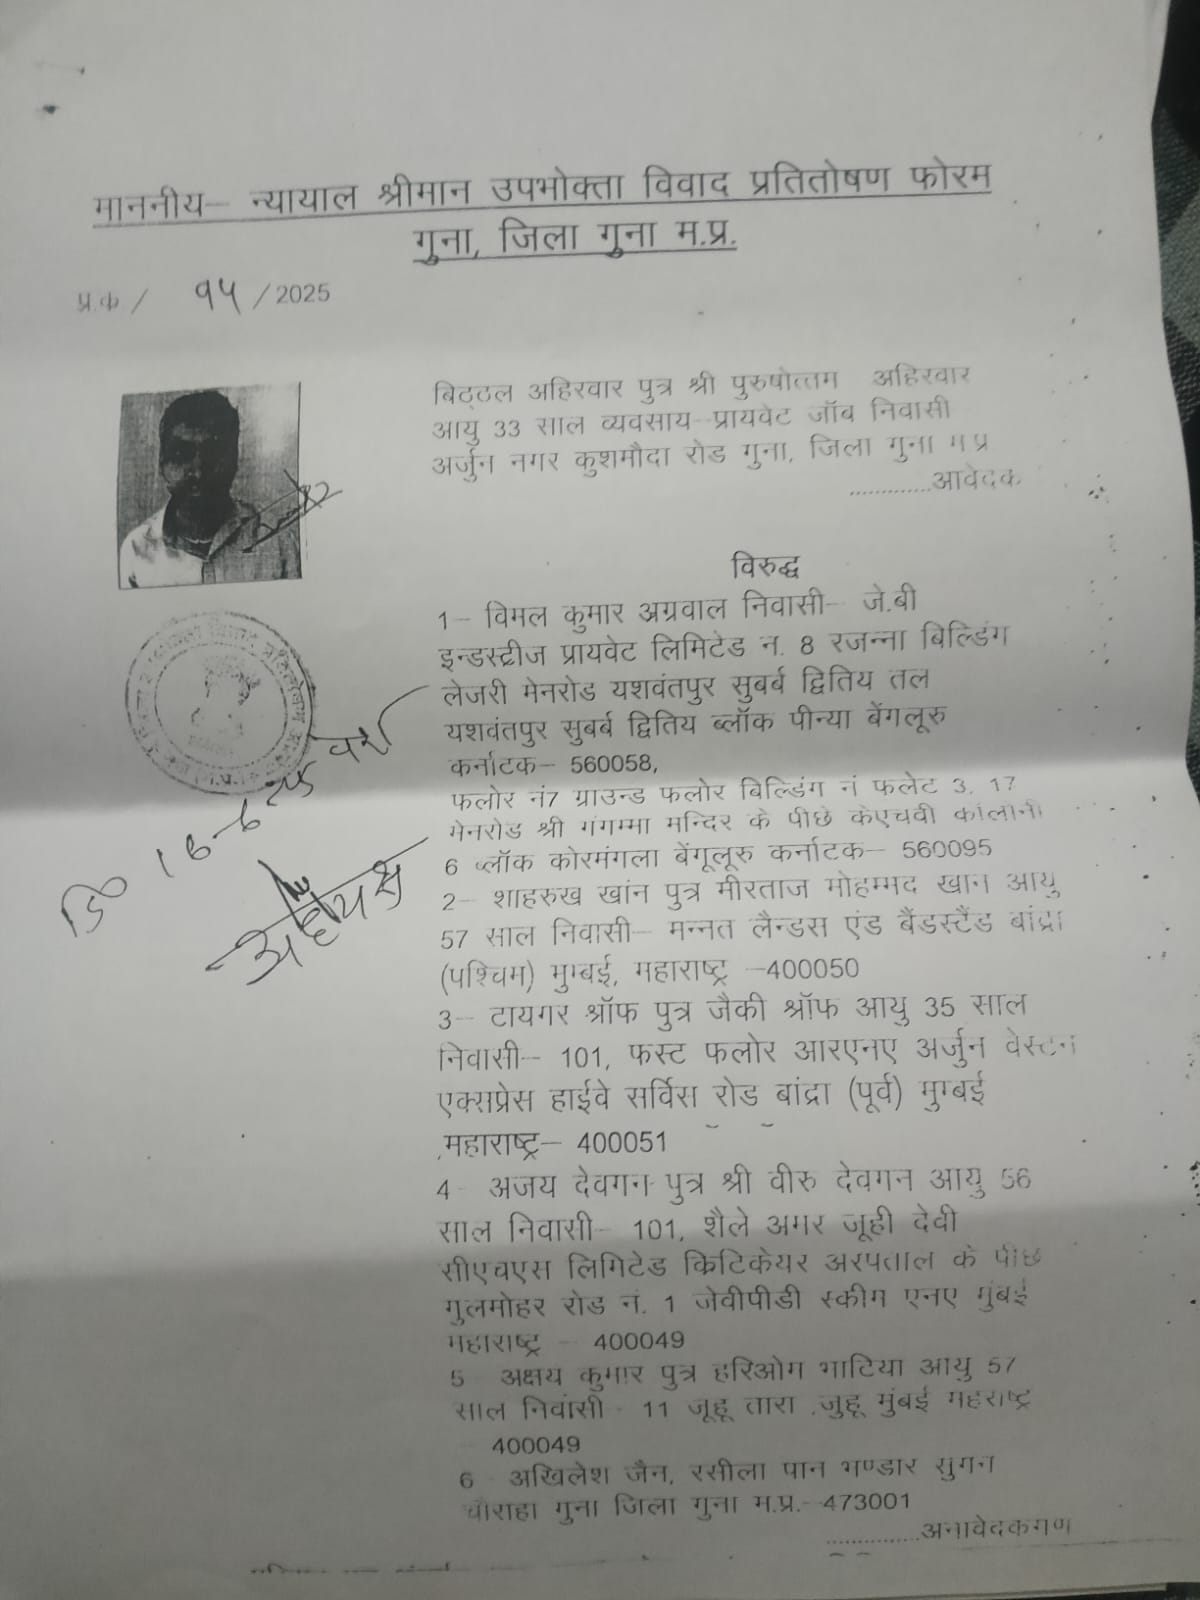 माननीय– न्यायाल श्रीमान उपभोक्ता विवाद प्रतितोषण फोरम
गुना, जिला गुना म.प्र.
प्र.क / १५ /2025
बिट्ठल अहिरवार पुत्र श्री पुरुषोत्तम अहिरवार
आयु 33 साल व्यवसाय–प्रायवेट जॉब निवासी
अर्जुन नगर कुशमौदा रोड गुना, जिला गुना म.प्र
.............आवेदक
विरुद्ध
1– विमल कुमार अग्रवाल निवासी– जे.बी
इन्डस्ट्रीज प्रायवेट लिमिटेड न. 8 रजन्ना बिल्डिंग
लेजरी मेनरोड यशवंतपुर सुबर्ब द्वितिय तल
यशवंतपुर सुबर्ब द्वितिय ब्लॉक पीन्या बेंगलूरु
कर्नाटक– 560058,
फलोर नं7 ग्राउन्ड फलोर बिल्डिंग नं फलेट 3, 17
मेनरोड श्री गंगम्मा मन्दिर के पीछे केएचवी कॉलोनी
6 ब्लॉक कोरमंगला बेंगूलूरु कर्नाटक– 560095
2– शाहरुख खांन पुत्र मीरताज मोहम्मद खान आयु
57 साल निवासी– मन्नत लैन्डस एंड बैंडस्टैंड बांद्रा
(पश्चिम) मुम्बई, महाराष्ट्र –400050
3– टायगर श्रॉफ पुत्र जैकी श्रॉफ आयु 35 साल
निवासी– 101, फस्ट फलोर आरएनए अर्जुन वेस्टन
एक्सप्रेस हाईवे सर्विस रोड बांद्रा (पूर्व) मुम्बई
महाराष्ट्र– 400051
4– अजय देवगन पुत्र श्री वीरु देवगन आयु 56
साल निवासी– 101, शैले अमर जूही देवी
सीएचएस लिमिटेड क्रिटिकेयर अस्पताल के पीछे
गुलमोहर रोड नं. 1 जेवीपीडी स्कीम एनए मुंबई
महाराष्ट्र – 400049
5– अक्षय कुमार पुत्र हरिओम भाटिया आयु 57
साल निवांसी– 11 जूहू तारा जुहू मुंबई महराष्ट्र
– 400049
6 अखिलेश जैन, रसीला पान भण्डार सुगन
चौराहा गुना जिला गुना म.प्र.–473001
...............अनावेदकगण
दि० 16-6-25
अध्यक्ष